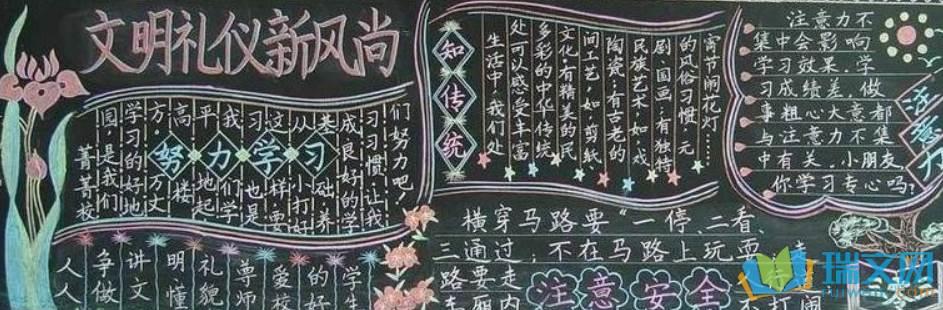 文明礼仪新风尚
努力学习
菁菁校
园,是我们
学习的好地
方。万丈
高楼
平地起
我们学
习也是
这样,要
从小打好
基础养
成良好的学
习习惯,让我
们努力吧!
知传统
生活中,我们处
处可以感受丰富
多彩的中华传统
文化。有精美的民
间工艺,如:剪紙
陶瓷;有古老的
民族艺术,如:戏
剧、国画;有独特
的风俗习惯,元
宵节闹花灯……
注意力
注意力不
集中会影响
学习效果,学
习成绩差,做
事粗心大意都
与注意力不集
中有关,小朋友
你学习专心吗?
人人
争做
讲文
明懂
礼貌
尊师
爱校
的好
学生
横穿马路要"一停、二看、
三通过,不在马路上玩耍,走
路要走
车厢内
打闹
注意安全
瑞文网